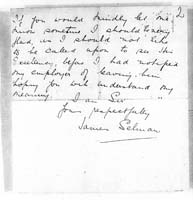 2
if you would kindly let me
know sometime I should be very
glad, as I should not like
to be called upon to see His
Excellency, before I had notified
my employer of leaving him
hoping you will understand my
meaning.
I am Sir
Yours respectfully
James Selman